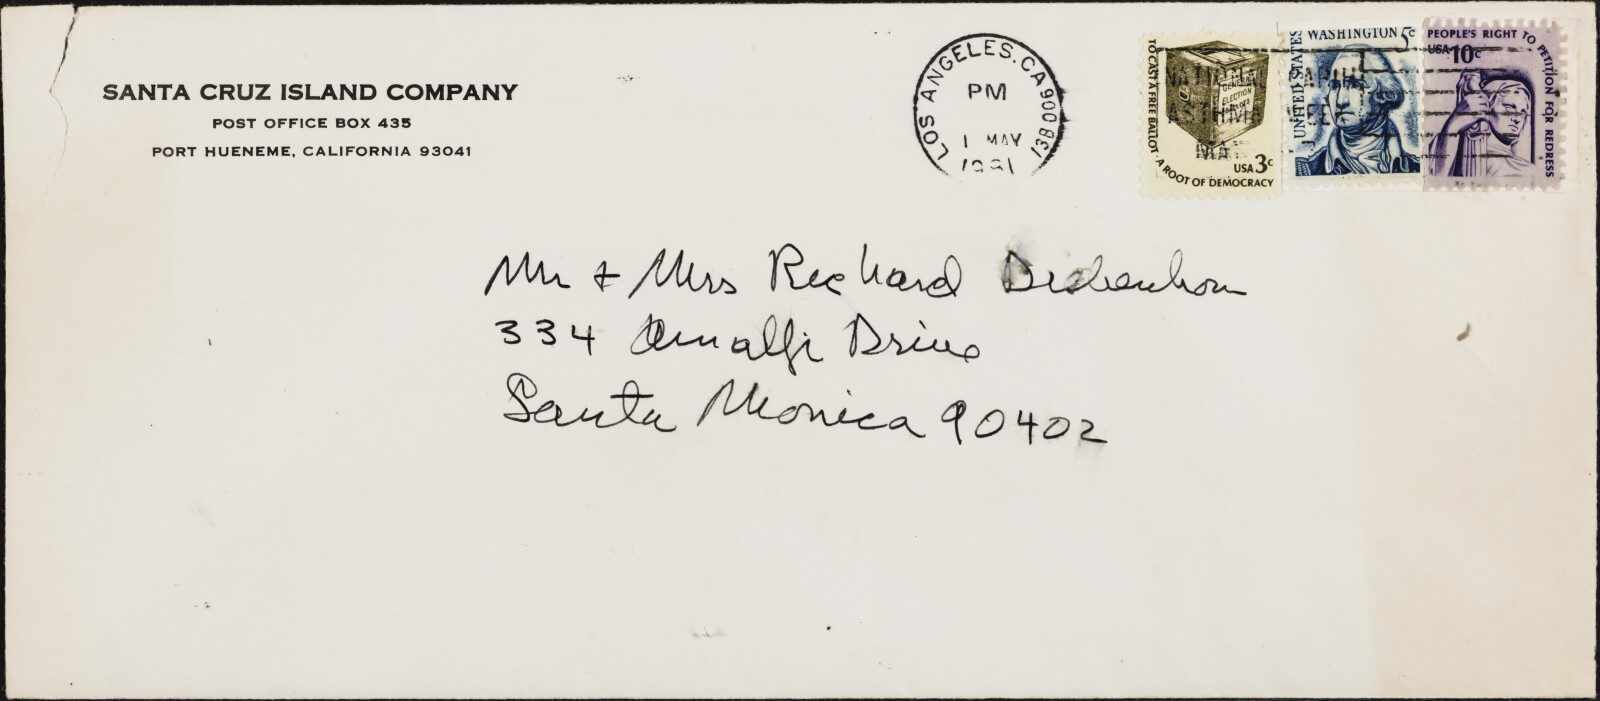 SANTA CRUZ ISLAND COMPANY
POST OFFICE BOX 435
PORT HUENEME, CALIFORNIA 93041
LOS ANGELES, CA 900
PM
1 MAY
1981
TO CAST A FREE BALLOT · A ROOT OF DEMOCRACY
GENERAL
ELECTION
USA 3c
UNITED STATES
WASHINGTON 5c
PEOPLE'S RIGHT TO PETITION FOR REDRESS
USA 10c
NATIONAL
ASTHMA WEEK
MAY
Mr + Mrs Richard
334 Amalfi Drive
Santa Monica 90402